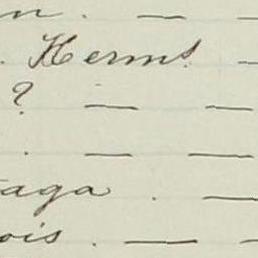 n. — —
. Herms. —
? — —
. — —
aga . —
ois . — —